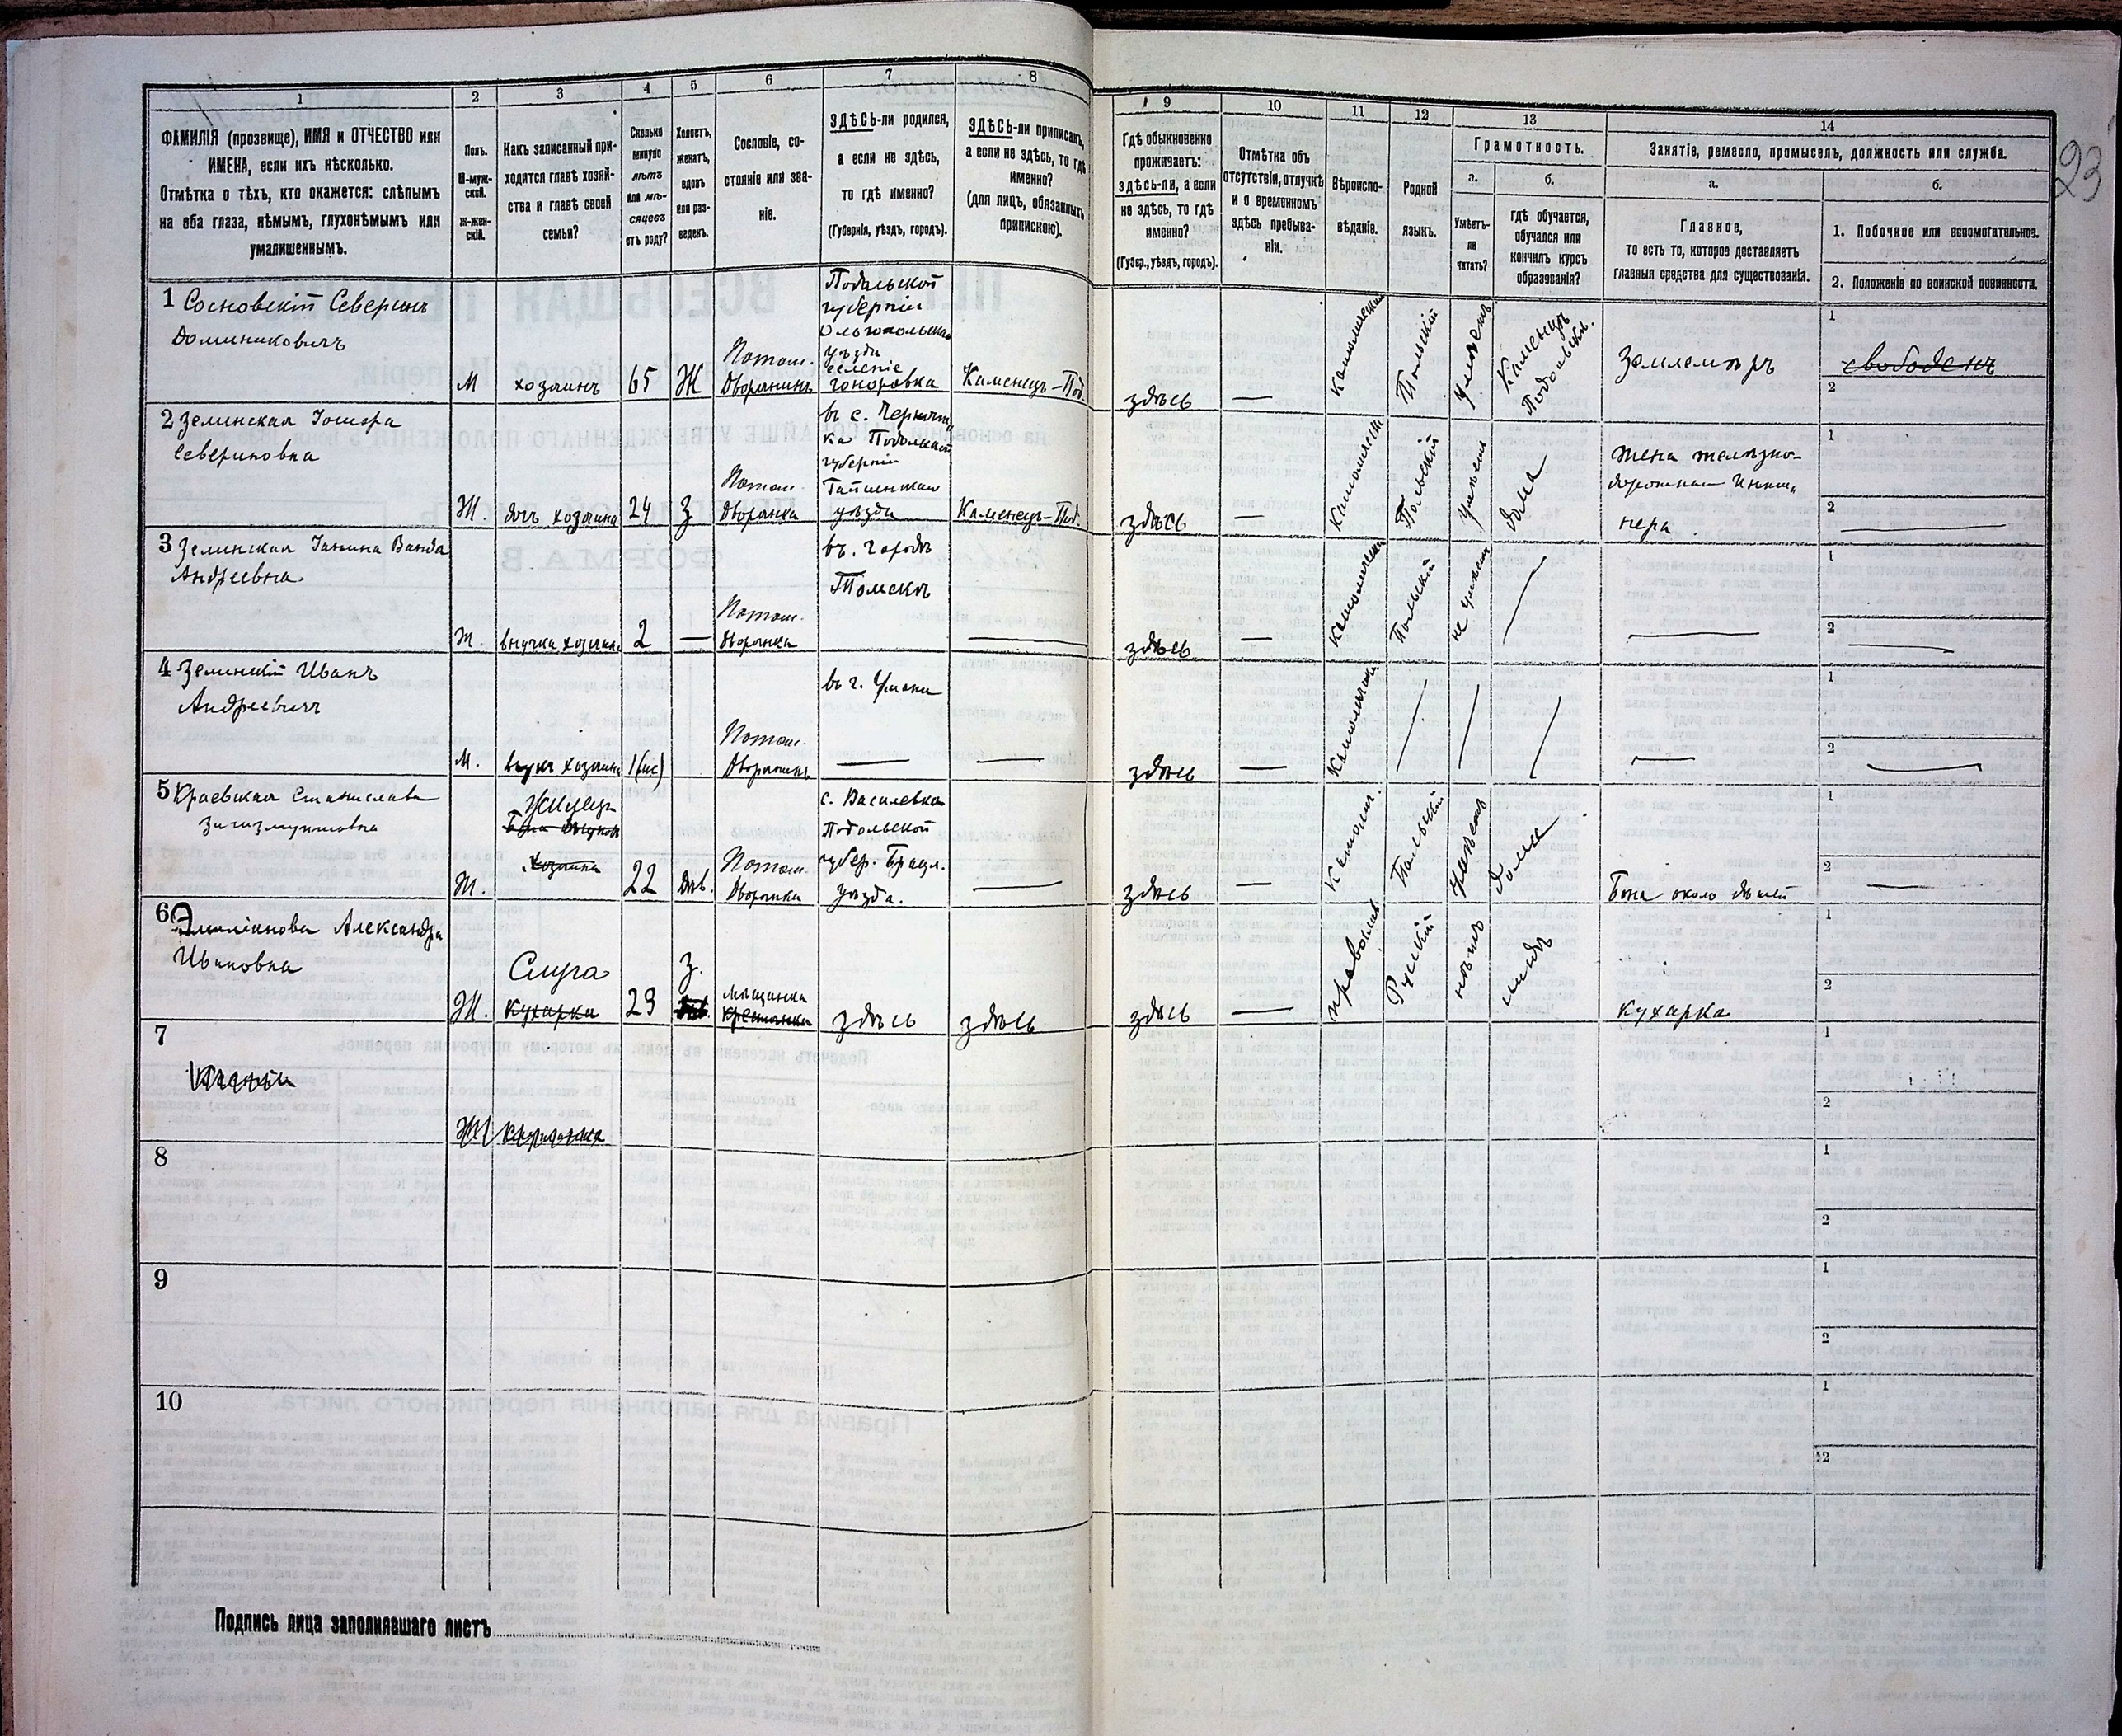 23
1 2 3 4 5 6 7 8 9 10 11 12 13 14
ФАМИЛІЯ (прозвище), ИМЯ и ОТЧЕСТВО или
ИМЕНА, если ихъ нѣсколько.
Отмѣтка о тѣхъ, кто окажется: слѣпымъ
на оба глаза, нѣмымъ, глухонѣмымъ или
умалишеннымъ.
Полъ.
М-муж-
ской.
Ж-жен-
скій.
Какъ записанный при-
ходится главѣ хозяй-
ства и главѣ своей
семьи?
Сколько
минуло
лѣтъ
или мѣ-
сяцевъ
отъ роду?
Холостъ,
женатъ,
вдовъ
или раз-
веденъ.
Сословіе, со-
стояніе или зва-
ніе.
ЗДѢСЬ-ли родился,
а если не здѣсь,
то гдѣ именно?
(Губернія, уѣздъ, городъ).
ЗДѢСЬ-ли приписанъ,
а если не здѣсь, то гдѣ
именно?
(для лицъ, обязанныхъ
припискою).
Гдѣ обыкновенно
проживаетъ:
здѣсь-ли, а если
не здѣсь, то гдѣ
именно?
(Губер., уѣздъ, городъ).
Отмѣтка объ
отсутствіи, отлучкѣ
и о временномъ
здѣсь пребыва-
ніи.
Вѣроиспо-
вѣданіе.
Родной
языкъ.
Грамотность.
а.
Умѣетъ-
ли
читать?
б.
гдѣ обучается,
обучался или
кончилъ курсъ
образованія?
Занятіе, ремесло, промыселъ, должность или служба.
а.
Главное,
то есть то, которое доставляетъ
главныя средства для существованія.
б.
1. Побочное или вспомогательное.
2. Положеніе по воинской повинности.
1 Сосновскій Северинъ
Доминиковичъ
М
хозяинъ
65
Ж
Потом.
Дворянинъ
Подольской
губерніи
Ольгопольскаго
уѣзда
селеніе
гоноровка
Каменецъ-Под.
здѣсь
Католическ.
Польскій
Умѣетъ
Каменецъ
Подольск.
Землемѣръ
1
свободенъ
2
2 Зелинская
Севериновна
Ж.
дочь хозяина
24
З
Потом.
Дворянка
въ с.
Подольской
губерніи
уѣзда
Каменецъ-Под.
здѣсь
Католическ.
Польскій
Умѣетъ
дома
Жена желѣзно-
дорожнаго Инже-
нера
1
2
3 Зелинская Янина Ванда
Андреевна
Ж.
внучка хозяина
2
Потом.
Дворянка
въ городѣ
Томскѣ
здѣсь
Католическ.
Польскій
не умѣетъ
1
2
4 Зелинскій Иванъ
Андреевичъ
М.
внукъ хозяина
1 (мс)
Потом.
Дворянинъ
въ г. Умани
здѣсь
Католическ.
1
2
5 Краевская Станислава
Зигизмунтовна
Ж.
Жилица
Бона внуковъ
хозяина
22
дѣв.
Потом.
Дворянка
с. Василевка
Подольской
губер. Брацл.
уѣзда.
здѣсь
Католич.
Польскій
умѣетъ
дома
Бона около дѣтей
1
2
6 Емиліанова Александра
Ивановна
Ж.
Слуга
кухарка
23
З.
дѣв.
мѣщанка
крестьянка
здѣсь
здѣсь
здѣсь
православ.
Русскій
нѣтъ
нигдѣ
кухарка
1
2
7
Ж
1
2
8
1
2
9
1
2
10
1
2
Подпись лица заполнявшаго листъ